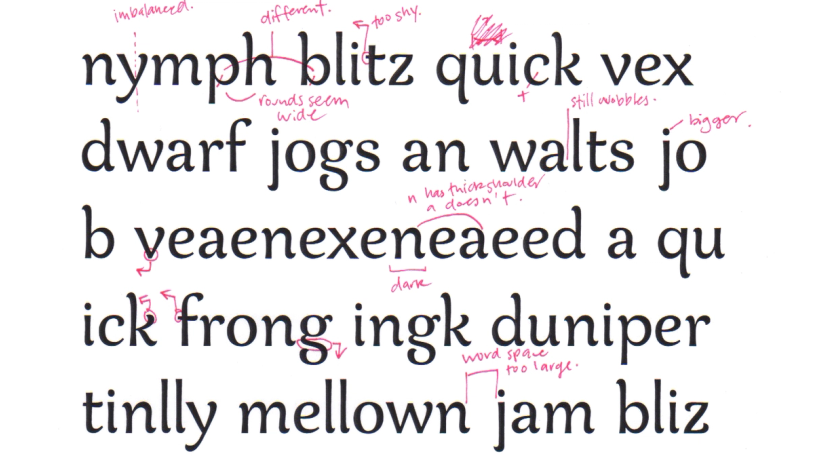 imbalanced.
different.
too shy.
nymph blitz quick vex
rounds seem
wide
+
still wobbles.
dwarf jogs an walts jo
bigger.
n has thick shoulder
a doesn't.
b veaenexeneaeed a qu
dark
ick frong ingk duniper
word space
too large.
tinlly mellown jam bliz